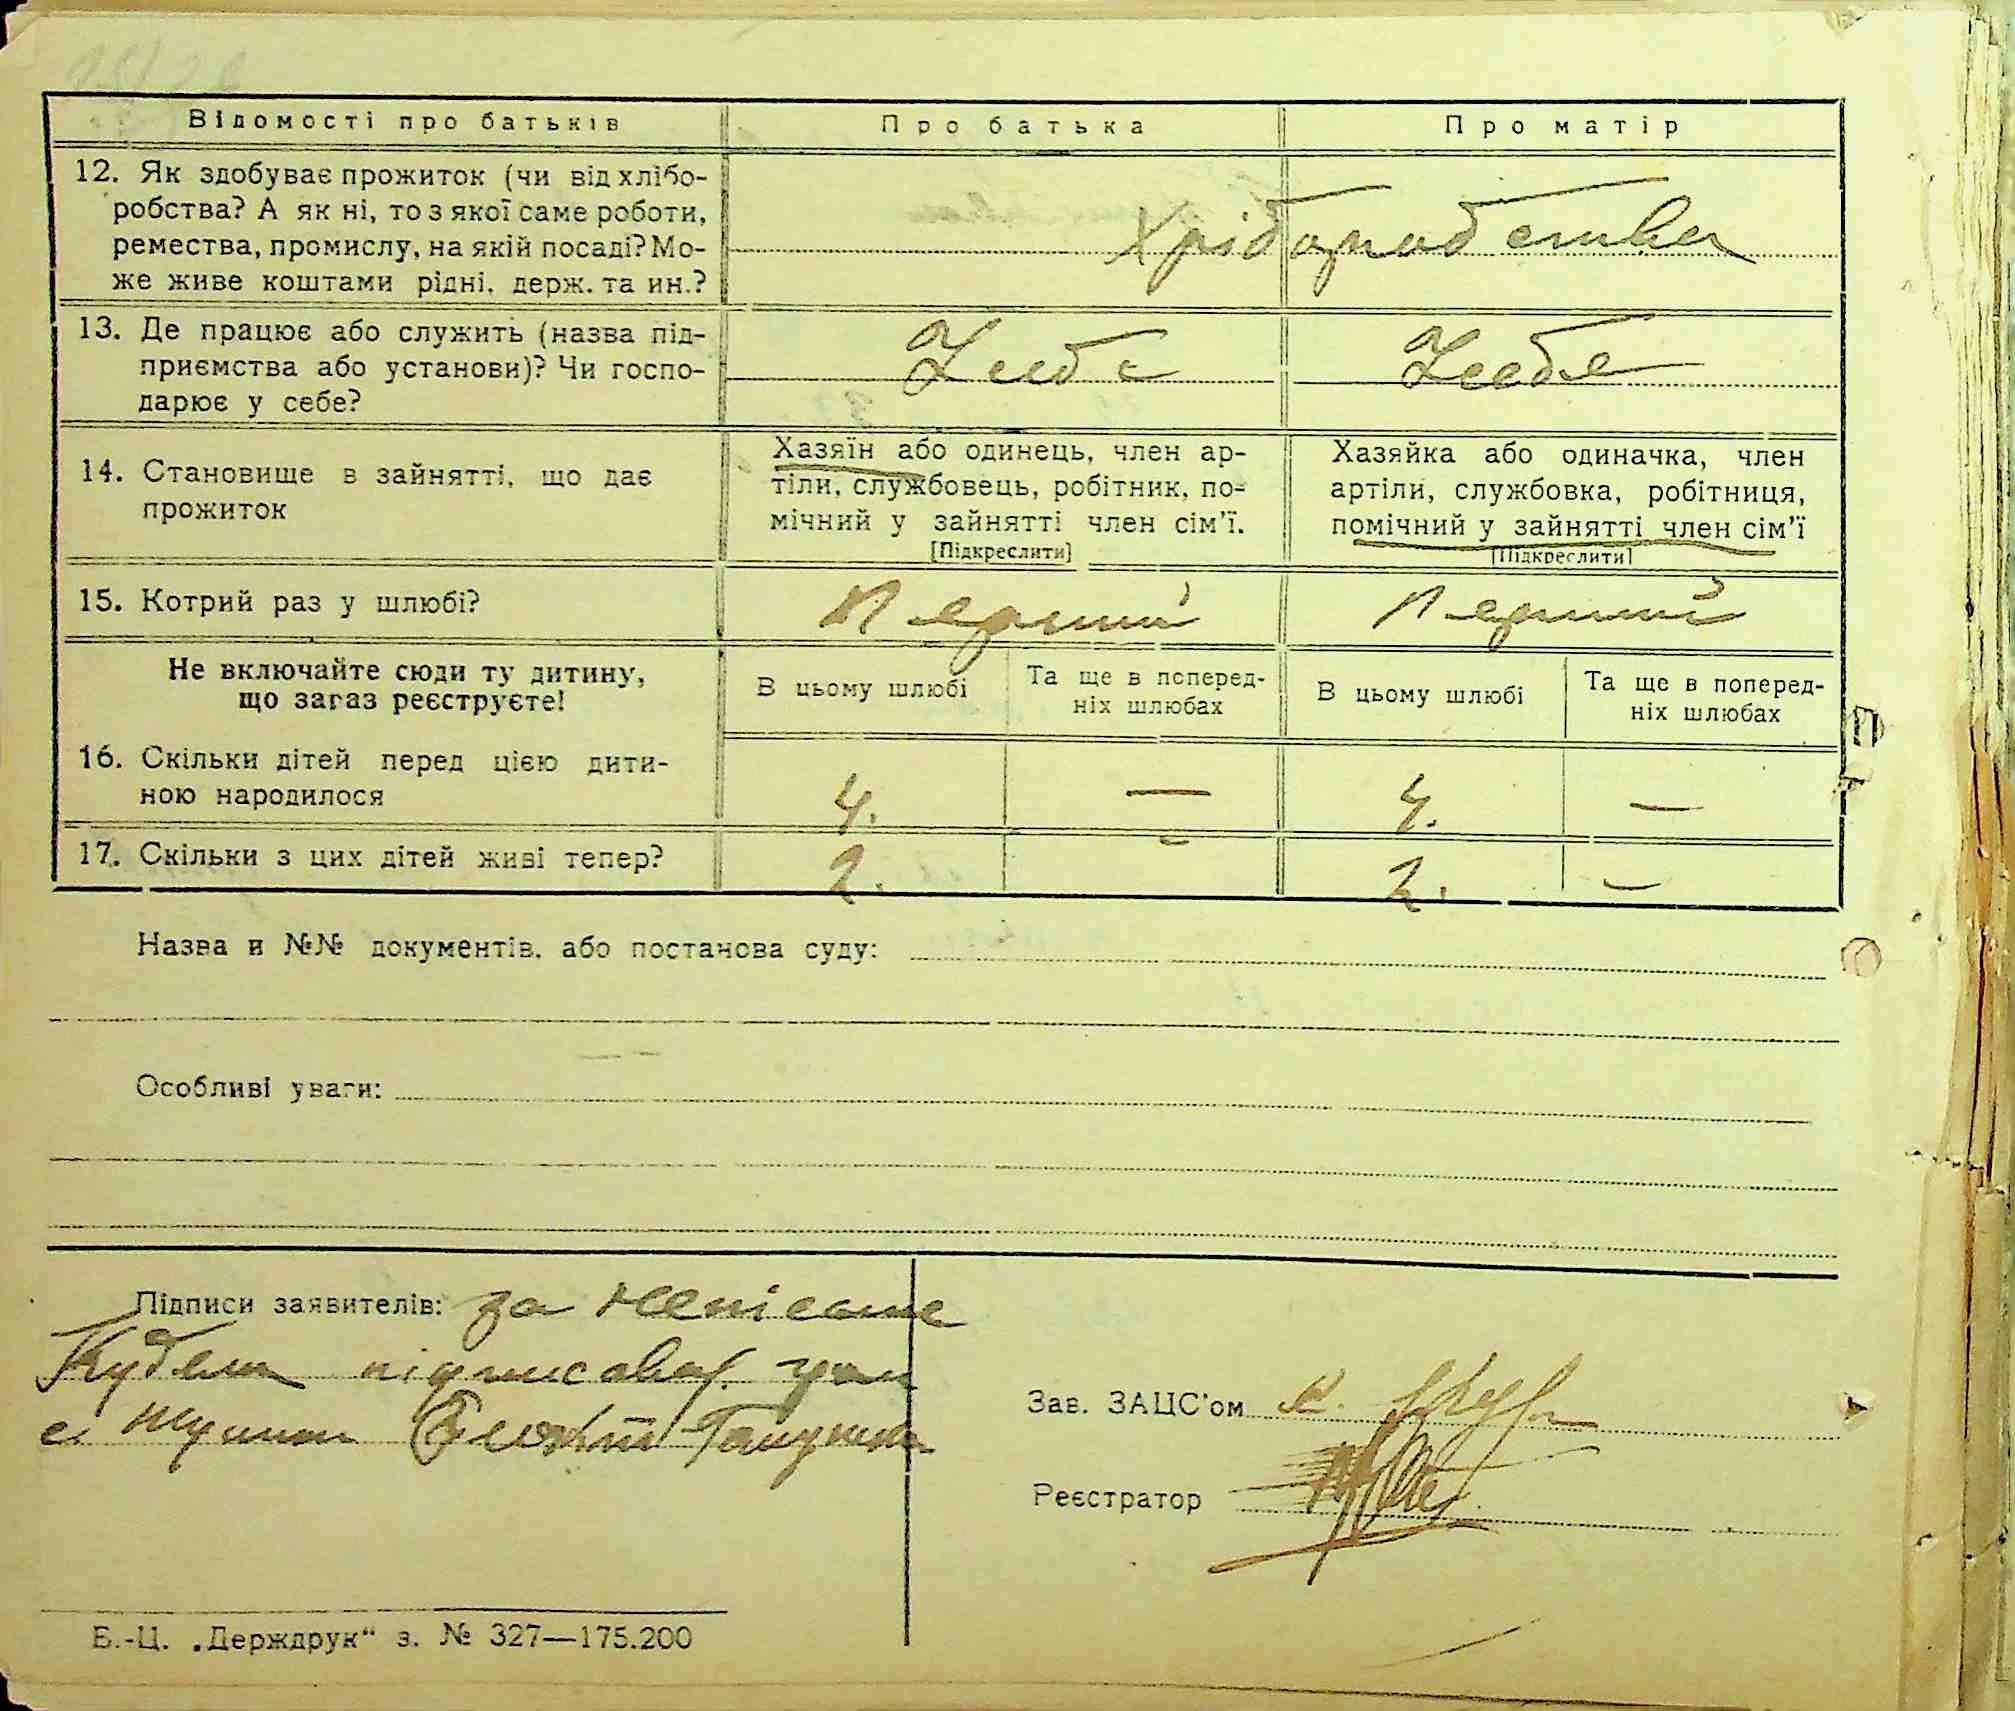 Відомості про батьків
Про батька
Про матір
12. Як здобуває прожиток (чи від хлібо-
робства? А як ні, то з якої саме роботи,
ремества, промислу, на якій посаді? Мо-
же живе коштами рідні, держ. та ин.?
Хріборобства
13. Де працює або служить (назва під-
приємства або установи)? Чи госпо-
дарює у себе?
У себе
У себе
14. Становище в зайнятті, що дає
прожиток
Хазяїн або одинець, член ар-
тіли, службовець, робітник, по-
мічний у зайнятті член сім'ї.
[Підкреслити]
Хазяйка або одиначка, член
артіли, службовка, робітниця,
помічний у зайнятті член сім'ї
[Підкреслити]
15. Котрий раз у шлюбі?
Перший
Перший
Не включайте сюди ту дитину,
що зараз реєструєте!
В цьому шлюбі
Та ще в поперед-
ніх шлюбах
В цьому шлюбі
Та ще в поперед-
ніх шлюбах
16. Скільки дітей перед цією дити-
ною народилося
4. — 4. —
17. Скільки з цих дітей живі тепер?
2. — 2. —
Назва и №№ документів, або постанова суду:
Особливі уваги:
Підписи заявителів: за
підписав
Зав. ЗАЦС'ом
Реєстратор
Б.-Ц. „Держдрук“ з. № 327—175.200